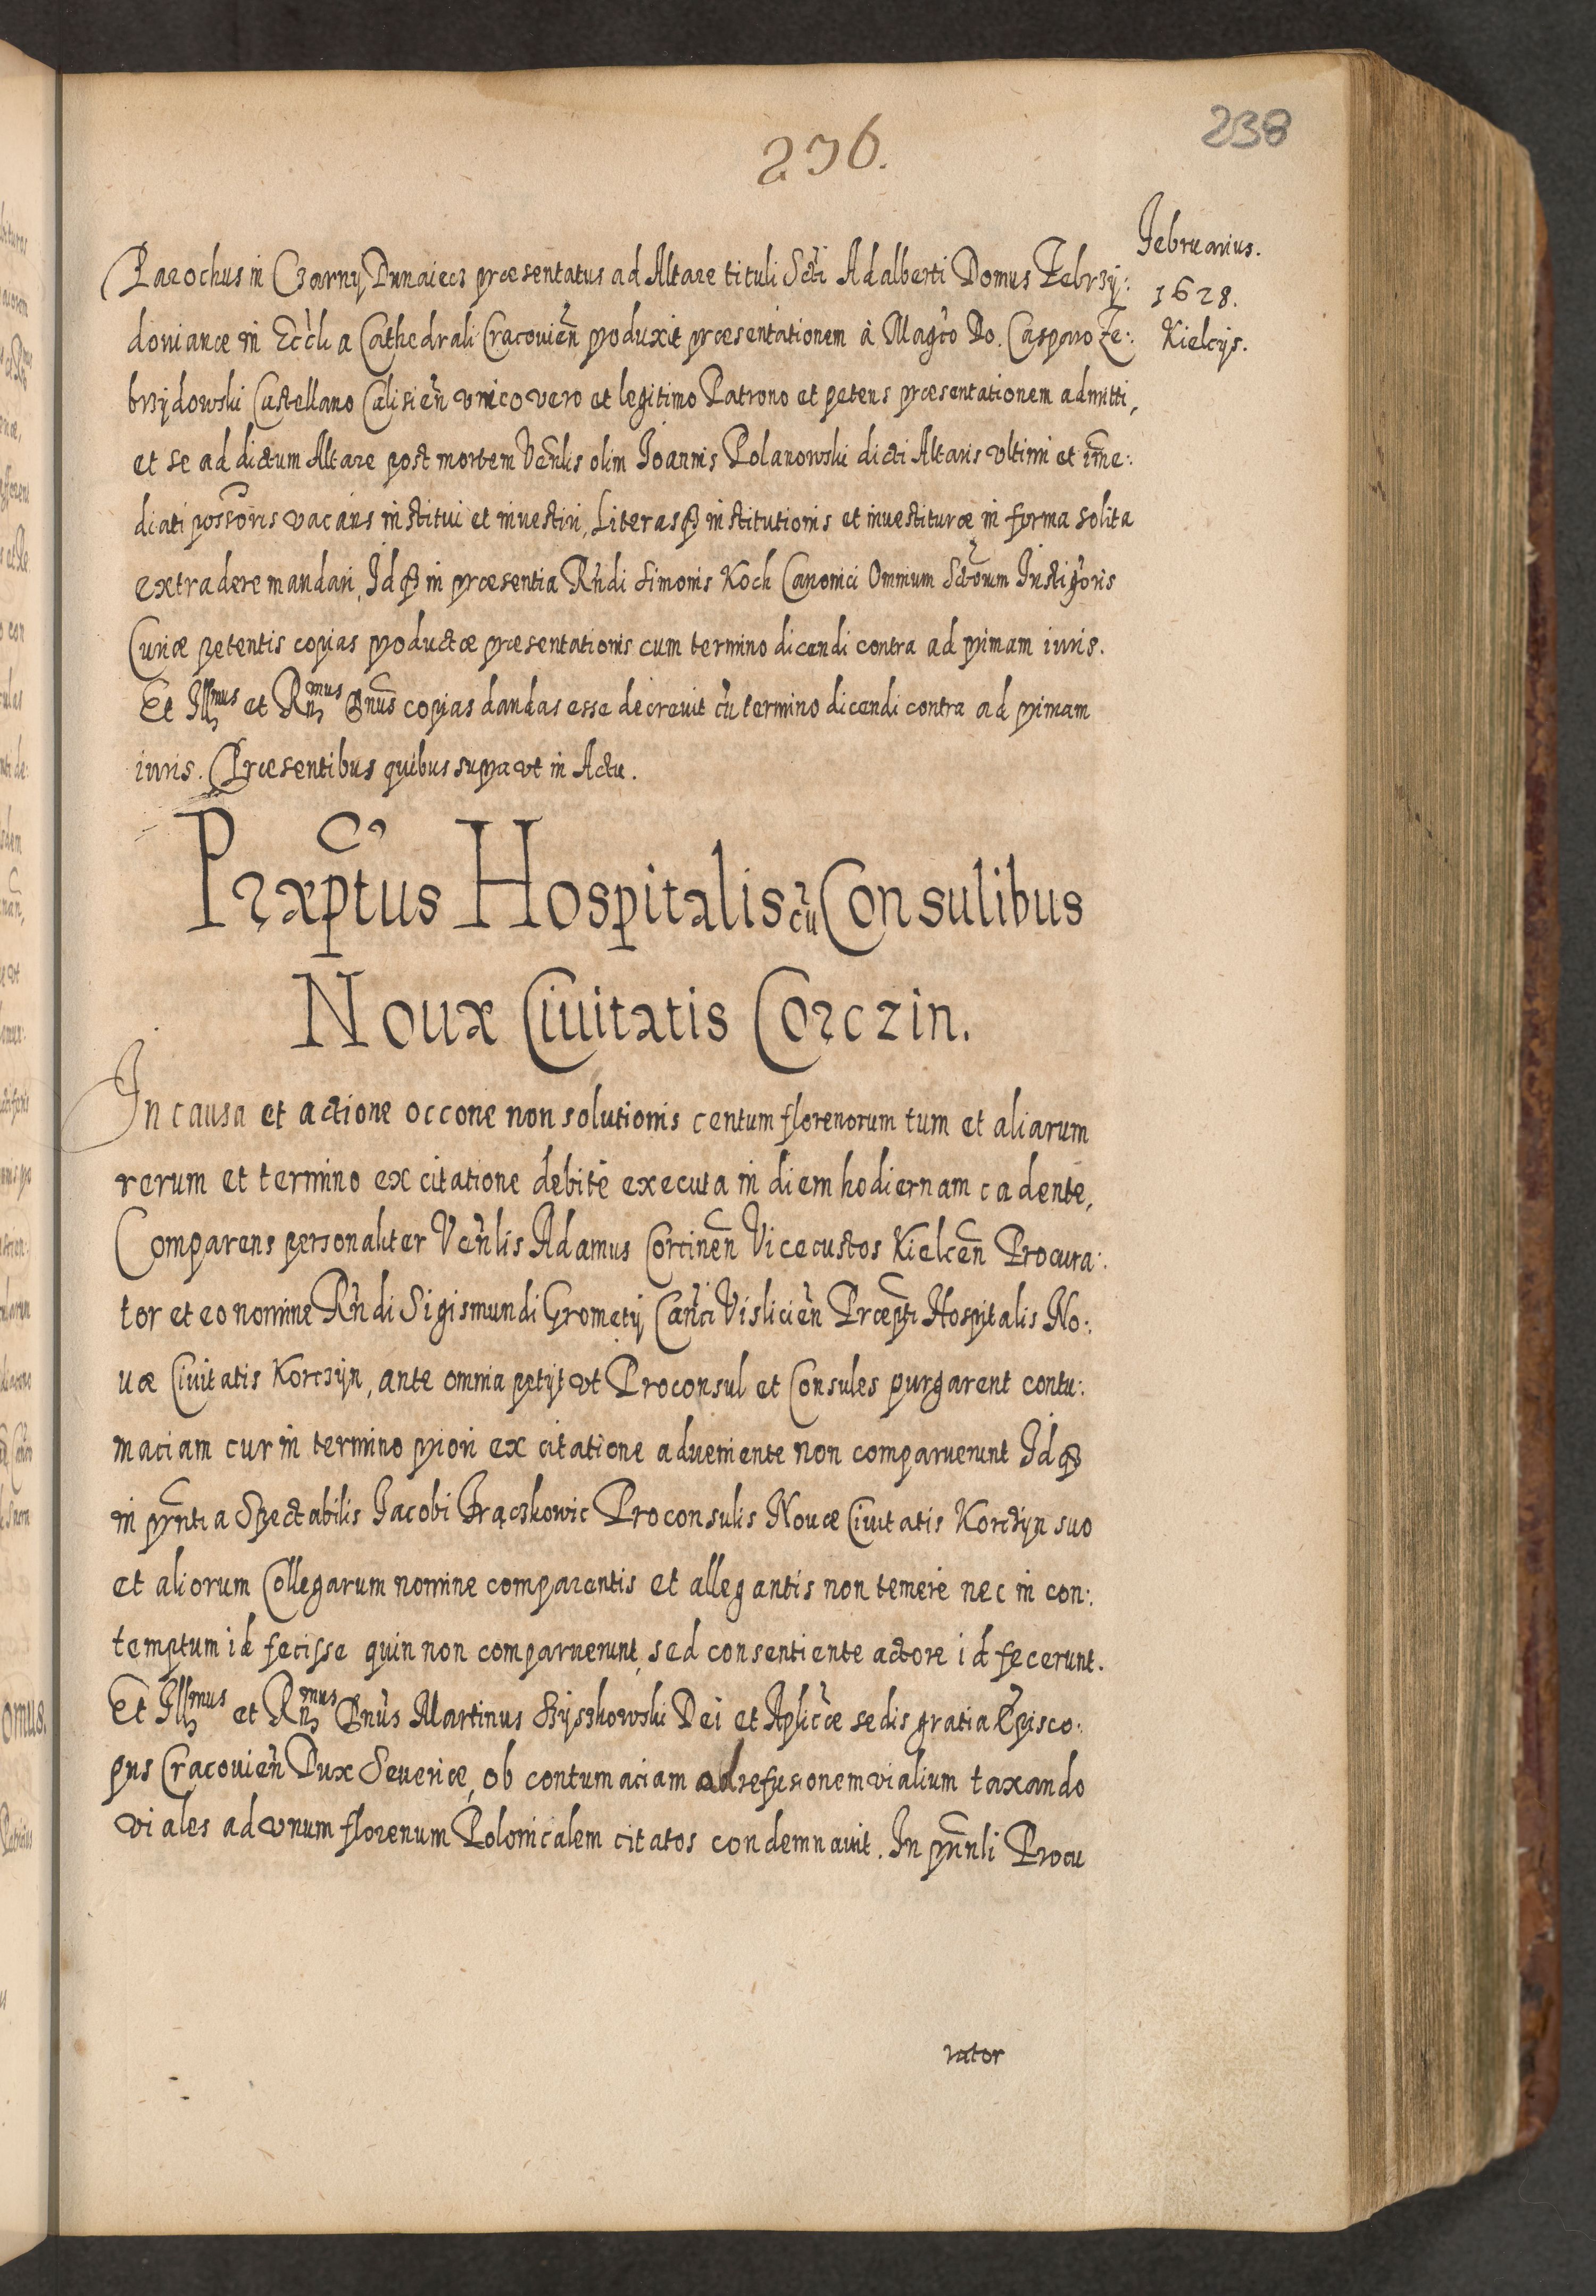 236.
238
Februarius.
1628.
Kielcijs.
Parochus in Czarny Dunaiecz præsentatus ad Altare tituli Scti Adalberti Domus Zebrzÿ:
douianæ in Eccli a Cathedrali Cracouien produxit præsentationem à Magco Do. Casparo Ze:
brzÿdowski Castellano Calisien vnico vero et legitimo Patrono et petens præsentationem admitti,
et se ad dictum Altare post mortem Venlis olim Joannis Polanowski dicti Altaris vltimi et imme:
diati possoris vacans institui et inuestiri, Literasq institutionis et inuestituræ in forma solita
extradere mandari, Idq in præsentia Rndi Simonis Koch Canonici Omnium Sctorum Instigoris
Curiæ petentis copias productæ præsentationis cum termino dicendi contra ad primam iuris.
Et Illmus et Rnmus Dnus copias dandas esse decreuit cu termino dicendi contra ad primam
iuris. Præsentibus quibus supra vt in Actu.
Præptus Hospitalis cu Consulibus
Nouæ Ciuitatis Corczin.
In causa et actione occone non solutionis centum florenorum tum et aliarum
rerum et termino ex citatione debitè executa in diem hodiernam cadente,
Comparens personaliter Venlis Adamus Corcinen Vicecustos Kielcen Procura:
tor et eo nomine Rndi Sigismundi Grometij Canci Vislicien Præpti Hospitalis No:
uæ Ciuitatis Korczÿn, ante omnia petijt vt Proconsul et Consules purgarent contu:
maciam cur in termino priori ex citatione adueniente non comparuerunt Idq
in prntia Spectabilis Jacobi Frączkowic Proconsulis Nouæ Ciuitatis Korczÿn suo
et aliorum Collegarum nomine comparentis et allegantis non temere nec in con:
temptum id fecisse quin non comparuerunt, sed consentiente actore id fecerunt.
Et Illmus et Rnmus Dnus Martinus Szÿszkowski Dei et Aplicæ sedis gratia Episco:
pus Cracouien Dux Seueriæ, ob contumaciam ad refusionem vialium taxando
viales ad vnum florenum Polonicalem citatos condemnauit. In prnnli Procu
rator